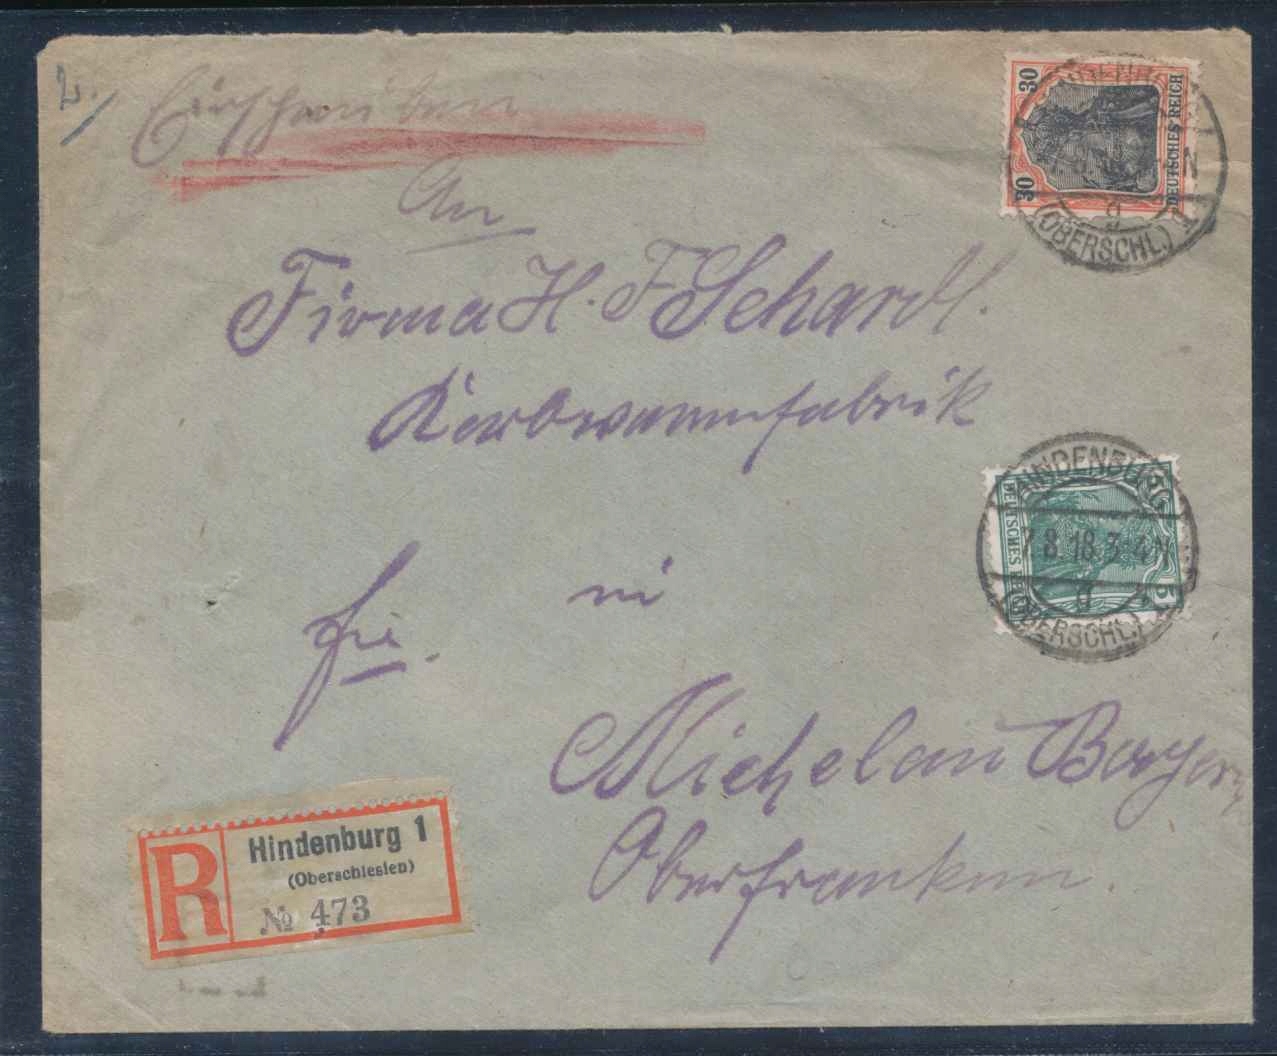 Einschreiben
An
Firma H. F Schardt.
Korbwarenfabrik
in
Michelau Bayern
Oberfranken.
30 30
DEUTSCHES REICH
(OBERSCHL.)
HINDENBURG
7.8.18.3-4N
a
(OBERSCHL.)
DEUTSCHES REICH
5
R
Hindenburg 1
(Oberschlesien)
№ 473